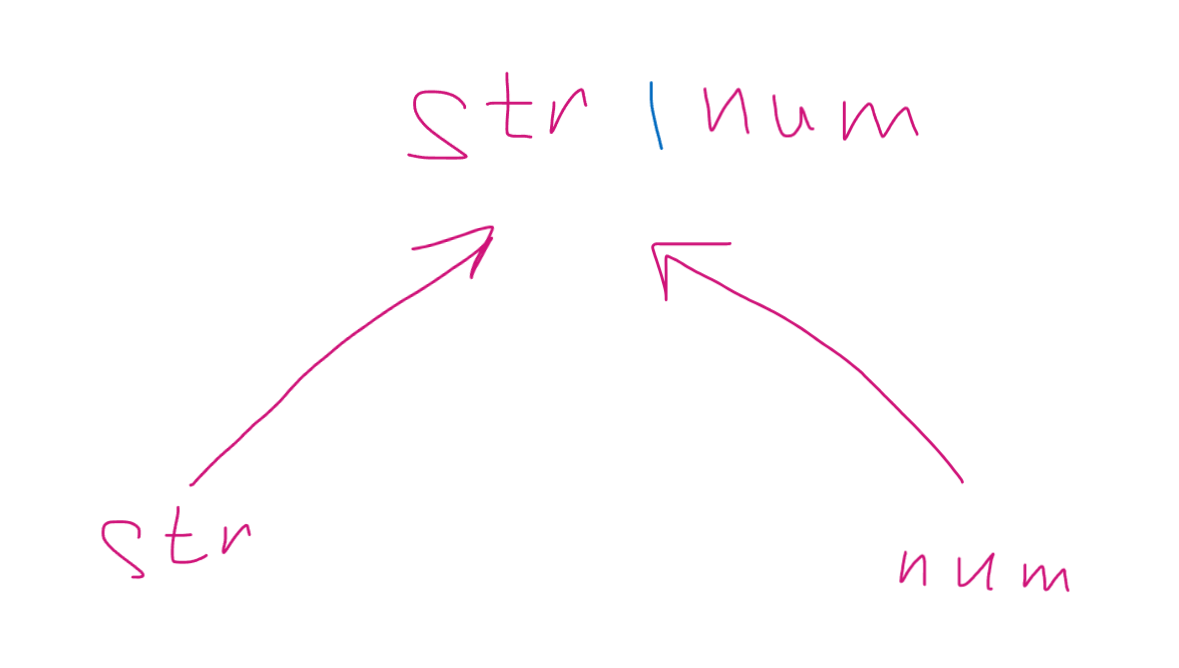 str | num
str
num